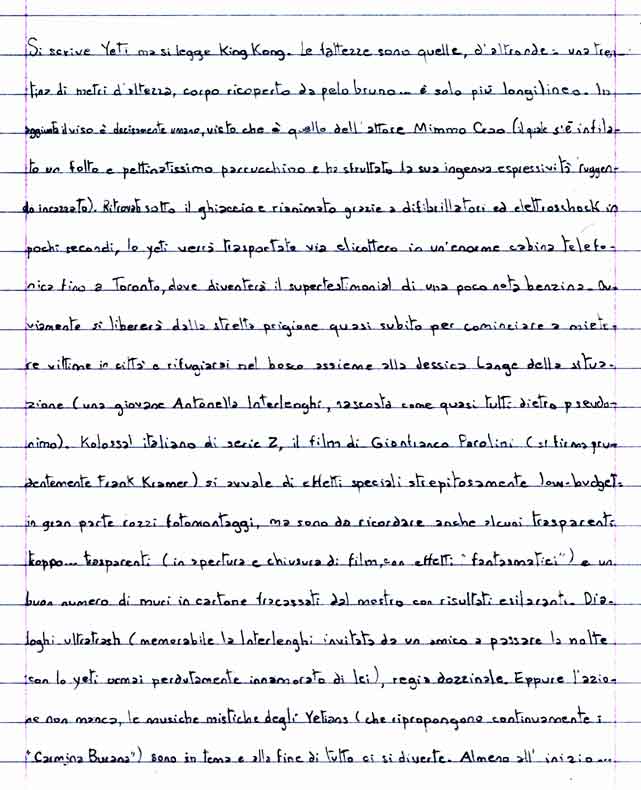 Si scrive Yeti ma si legge King Kong. Le fattezze sono quelle, d'altronde: una tren-
tina di metri d'altezza, corpo ricoperto da pelo bruno... è solo più longilineo. In
aggiunta il viso è decisamente umano, visto che è quello dell'attore Mimmo Crao (il quale s'è infila-
to un folto e pettinatissimo parrucchino e ha sfruttato la sua ingenua espressività ruggen-
do incazzato). Ritrovato sotto il ghiaccio e rianimato grazie a difibrillatori ed elettroschock in
pochi secondi, lo yeti verrà trasportato via elicottero in un'enorme cabina telefo-
nica fino a Toronto, dove diventerà il supertestimonial di una poco nota benzina. Ov-
viamente si libererà dalla stretta prigione quasi subito per cominciare a miete-
re vittime in città o rifugiarsi nel bosco assieme alla Jessica Lange della situa-
zione (una giovane Antonella Interlenghi, nascosta come quasi tutti dietro pseudo-
nimo). Kolossal italiano di serie Z, il film di Gianfranco Parolini (si firma pru-
dentemente Frank Kramer) si avvale di effetti speciali strepitosamente low-budget:
in gran parte rozzi fotomontaggi, ma sono da ricordare anche alcuni trasparenti
troppo... trasparenti (in apertura e chiusura di film, con effetti "fantasmatici") e un
buon numero di muri in cartone fracassati dal mostro con risultati esilaranti. Dia-
loghi ultratrash (memorabile la Interlenghi invitata da un amico a passare la notte
con lo yeti ormai perdutamente innamorato di lei), regia dozzinale. Eppure l'azio-
ne non manca, le musiche mistiche degli Yetians (che ripropongono continuamente i
"Carmina Burana") sono in tema e alla fine di tutto ci si diverte. Almeno all'inizio...